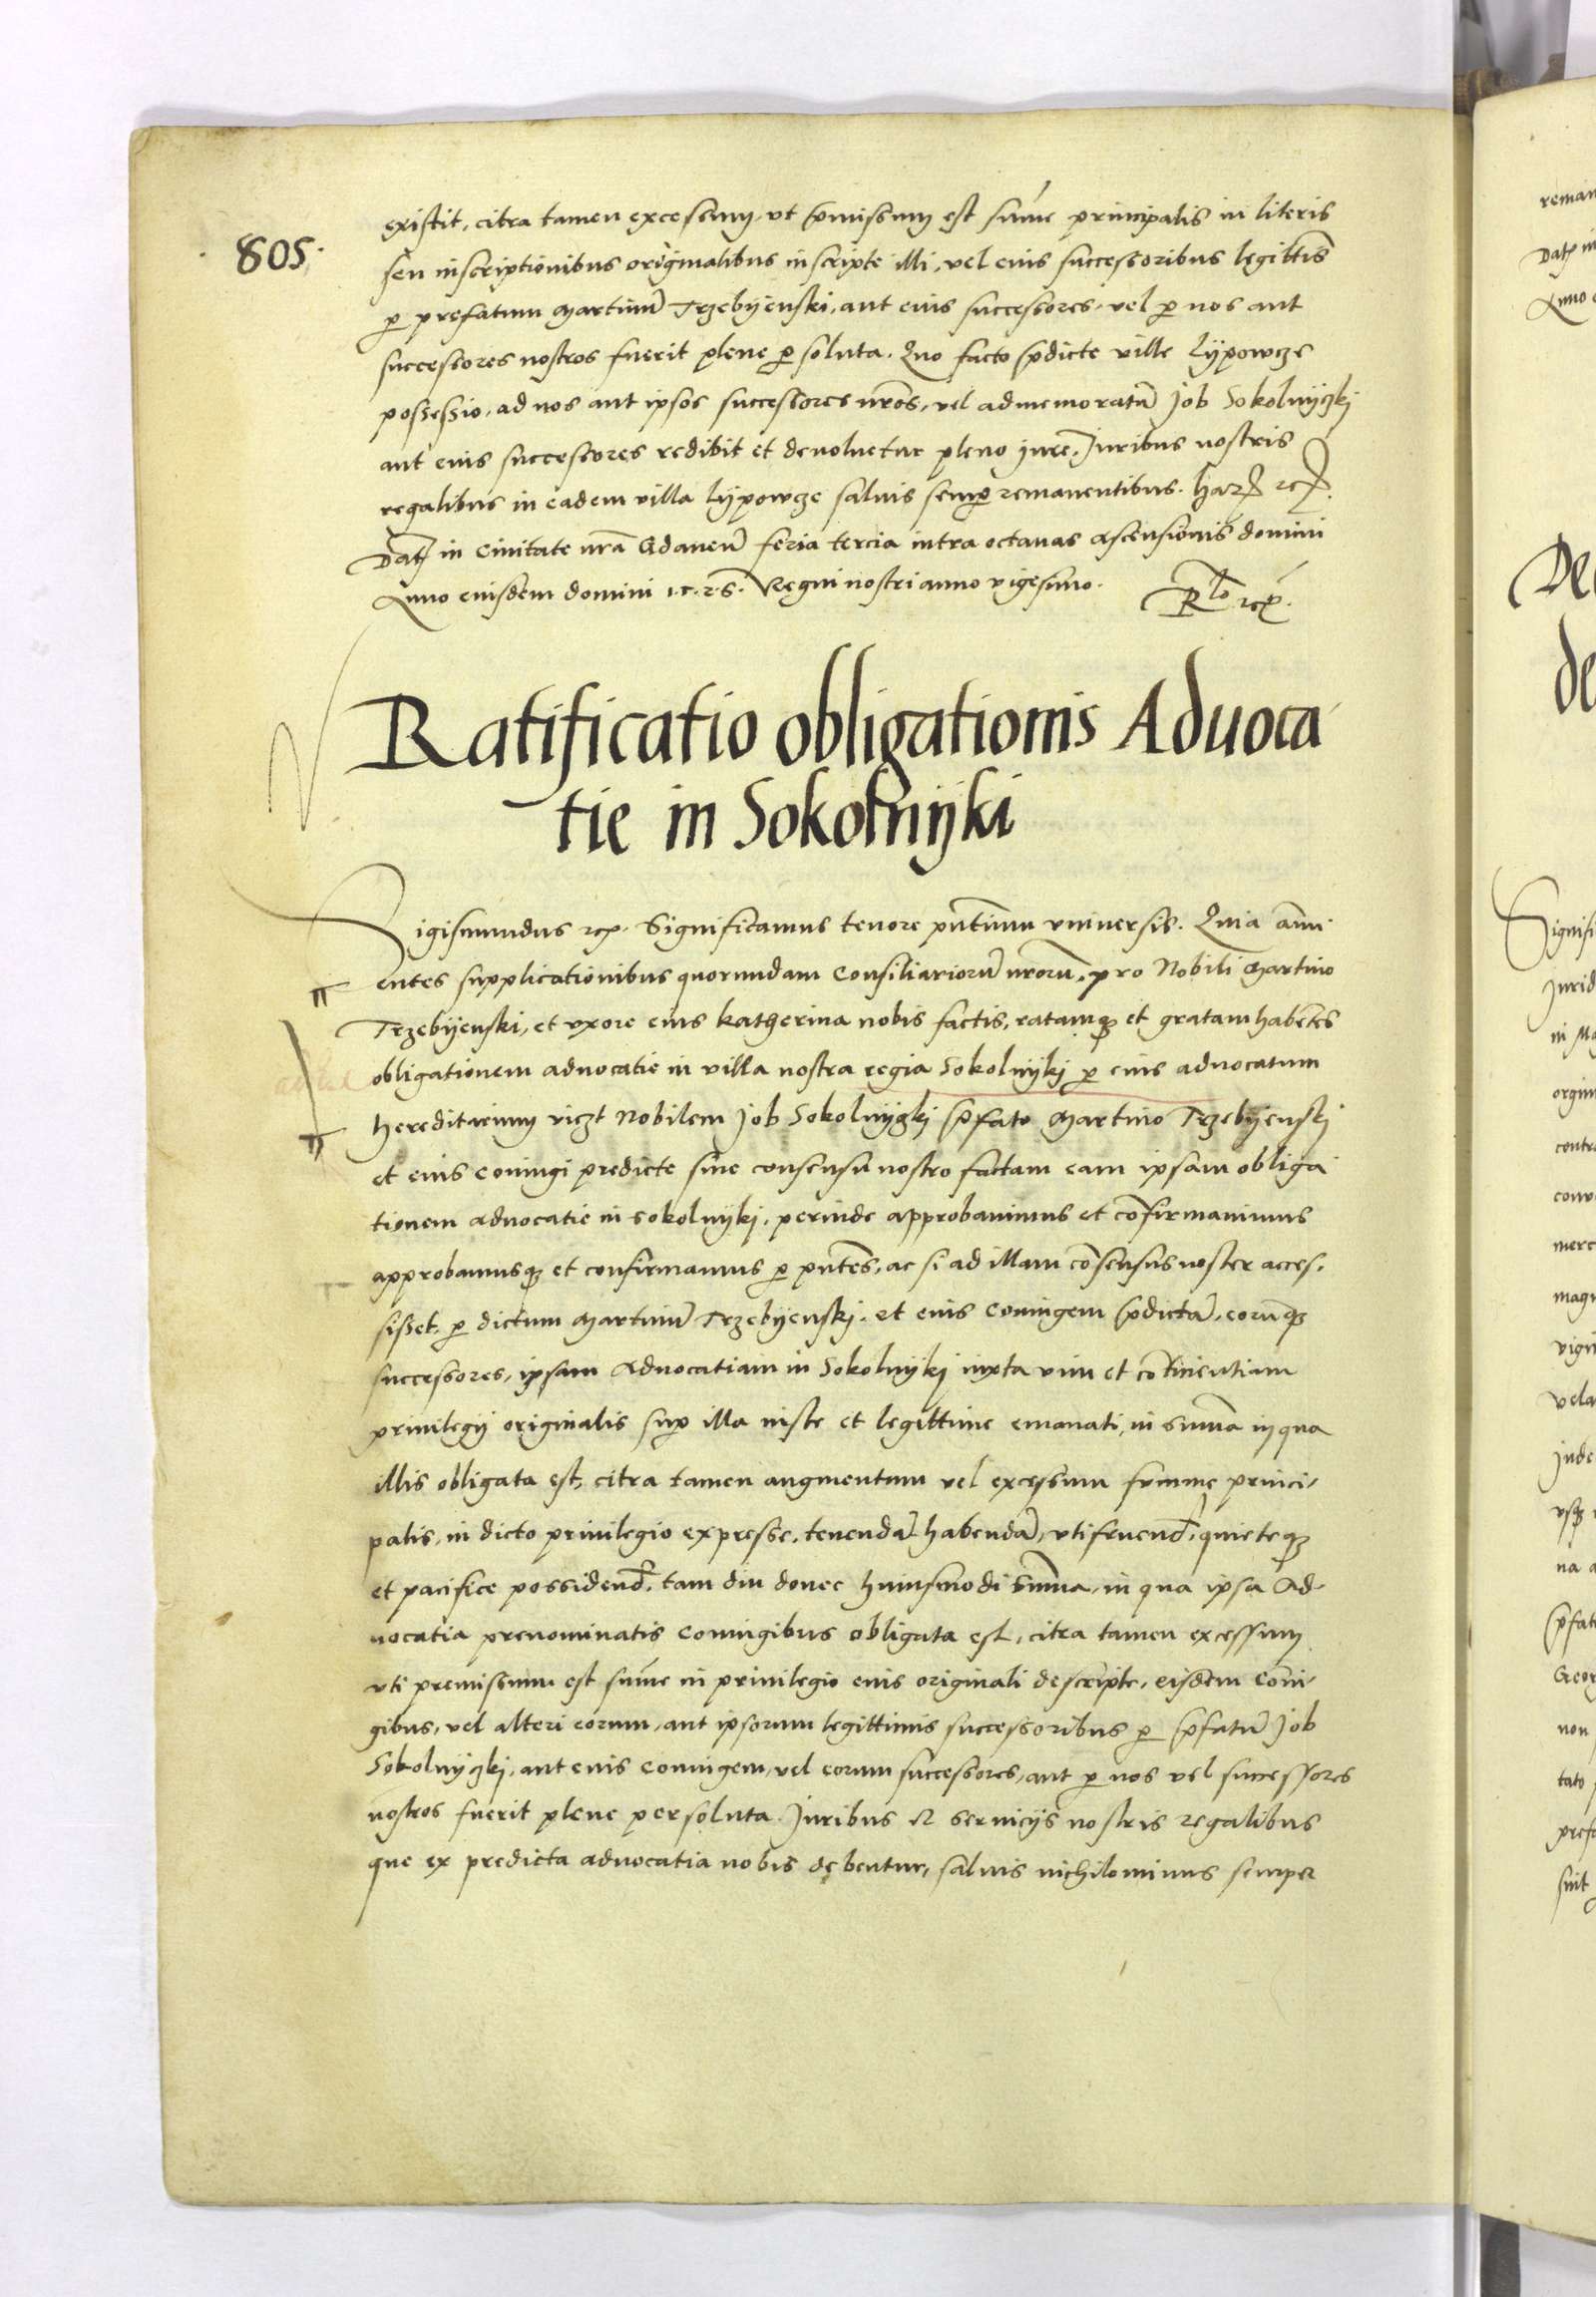 805.
existit, citra tamen excessum, ut p̄missum est sum̄e principalis in literis
seu inscriptionibus originalibus inscripte illi, vel eius successoribus legittīs
p̱ prefatum Martinū Trzebyenski, aut eius successores, vel p̱ nos aut
successores nostros fuerit plene p̱soluta. Quo facto p̄dicte ville Lypowcze
possessio, ad nos aut ipsos successores nr̄os, vel ad memoratū Job Sokolnyczki
aut eius successores redibit et devolvetur pleno jure, Juribus nostris
regalibus in eadem villa Lypowcze salvis semp̱ remanentibus. Harꝝ rcꝝ.
Datꝝ in Civitate nr̄a Gdanen̄ feria tercia intra octavas Ascensionis domini
Anno eiusdem domini 1.5.2.6. Regni nostri anno vigesimo.
R̄lo rcꝑ.
Ratificatio obligationis Advoca
tie in Sokolnyki
Sigismundus rcꝑ. Significamus tenore pn̄tium universis. Quia an̄u
entes supplicationibus quorundam Consiliariorū nr̄orū, pro Nobili Martino
Trzebyenski, et uxore eius Katherina nobis factis, ratamqȝ et gratam habentēs
obligationem advocatie in villa nostra regia Sokolnykj p̱ eius advocatum
hereditarium viczt Nobilem Job Sokolnyczkj p̄fato Martino Trzebyenskj
et eius coniugi predicte sine consensu nostro factam eam ipsam obliga
tionem advocatie in Sokolnykj, perinde approbavimus et cōfirmavimus
approbamusqȝ et confirmamus p̱ pn̄tes, ac si ad illam cōsensus noster acces,
sisset, p̱ dictum Martinū Trzebyenskj, et eius coniugem p̄dictā, eorūqȝ
successores, ipsam Advocatiam in Sokolnykj iuxta vim et cōtinentiam
privilegij originalis sup̱ illa iuste et legittime emanati, in sum̄a in qua
illis obligata est, citra tamen augmentum vel excessum summe princi,
palis, in dicto privilegio expresse, tenendā habendā, utifruend̄, quieteqȝ
et pacifice possidend̄, tam diu donec huiusmodi sum̄a, in qua ipsa Ad,
vocatia prenominatis coniugibus obligata est, citra tamen excessum
uti premissum est sum̄e in privilegio eius originali descripte, eisdem Cōiu,
gibus, vel alteri eorum, aut ipsorum legittimis successoribus p̱ p̄fatū Job
Sokolnyczkj, aut eius coniugem, vel eorum successores, aut p̱ nos vel successores
nostros fuerit plene persoluta. Juribus et servicijs nostris regalibus
que ex predicta advocatia nobis debentur, salvis nichilominus semper